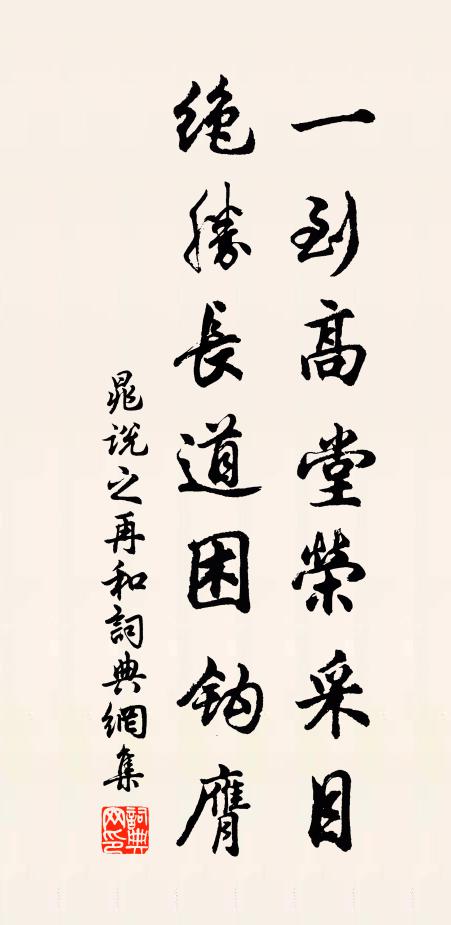 一到高堂榮采目
絶勝長道困鈎膺
晁説之再和詞典網集
詞典網印